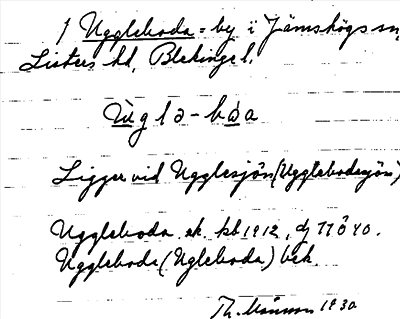 Uggleboda = by i Jämshögs sn,
Listers hd, Blekinge l.
ùglə-bòa
Ligger vid Ugglesjön (Ugglebodasjön)
Uggleboda ek. kb 1912, dj 77 ö 40.
Uggleboda (Ugleboda) bek.
Th. 1930